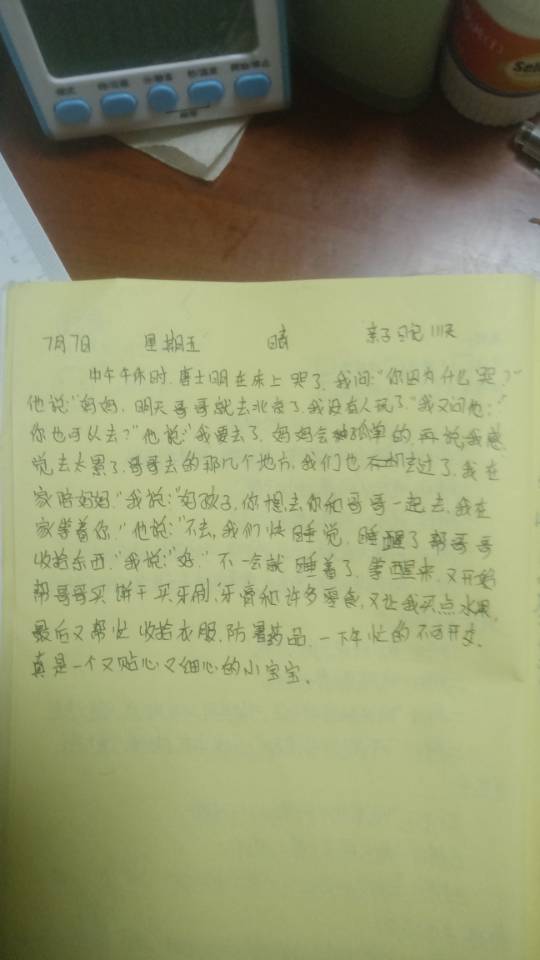 Sen
7月7日 星期五 晴 亲子日记 111天
中午午休时,唐士明在床上哭了,我问:“你因为什么哭?”
他说:“妈妈,明天哥哥就去北京了,我没有人玩了”我又问他:“
你也可以去?”他说:“我要去了,妈妈会孤单的,再说我感
觉去太累了,哥哥去的那几个地方,我们也去过了,我在
家陪妈妈。”我说:“好孩子,你想去你和哥哥一起去,我在
家等着你。”他说:“不去,我们快睡觉,睡醒了帮哥哥
收拾东西。”我说:“好。”不一会就睡着了,等醒来,又开始
帮哥哥买饼干买牙刷,牙膏和许多零食,又让我买点水果,
最后又帮忙收拾衣服,防暑药品,一下午忙的不可开交,
真是一个又贴心又细心的小宝宝。